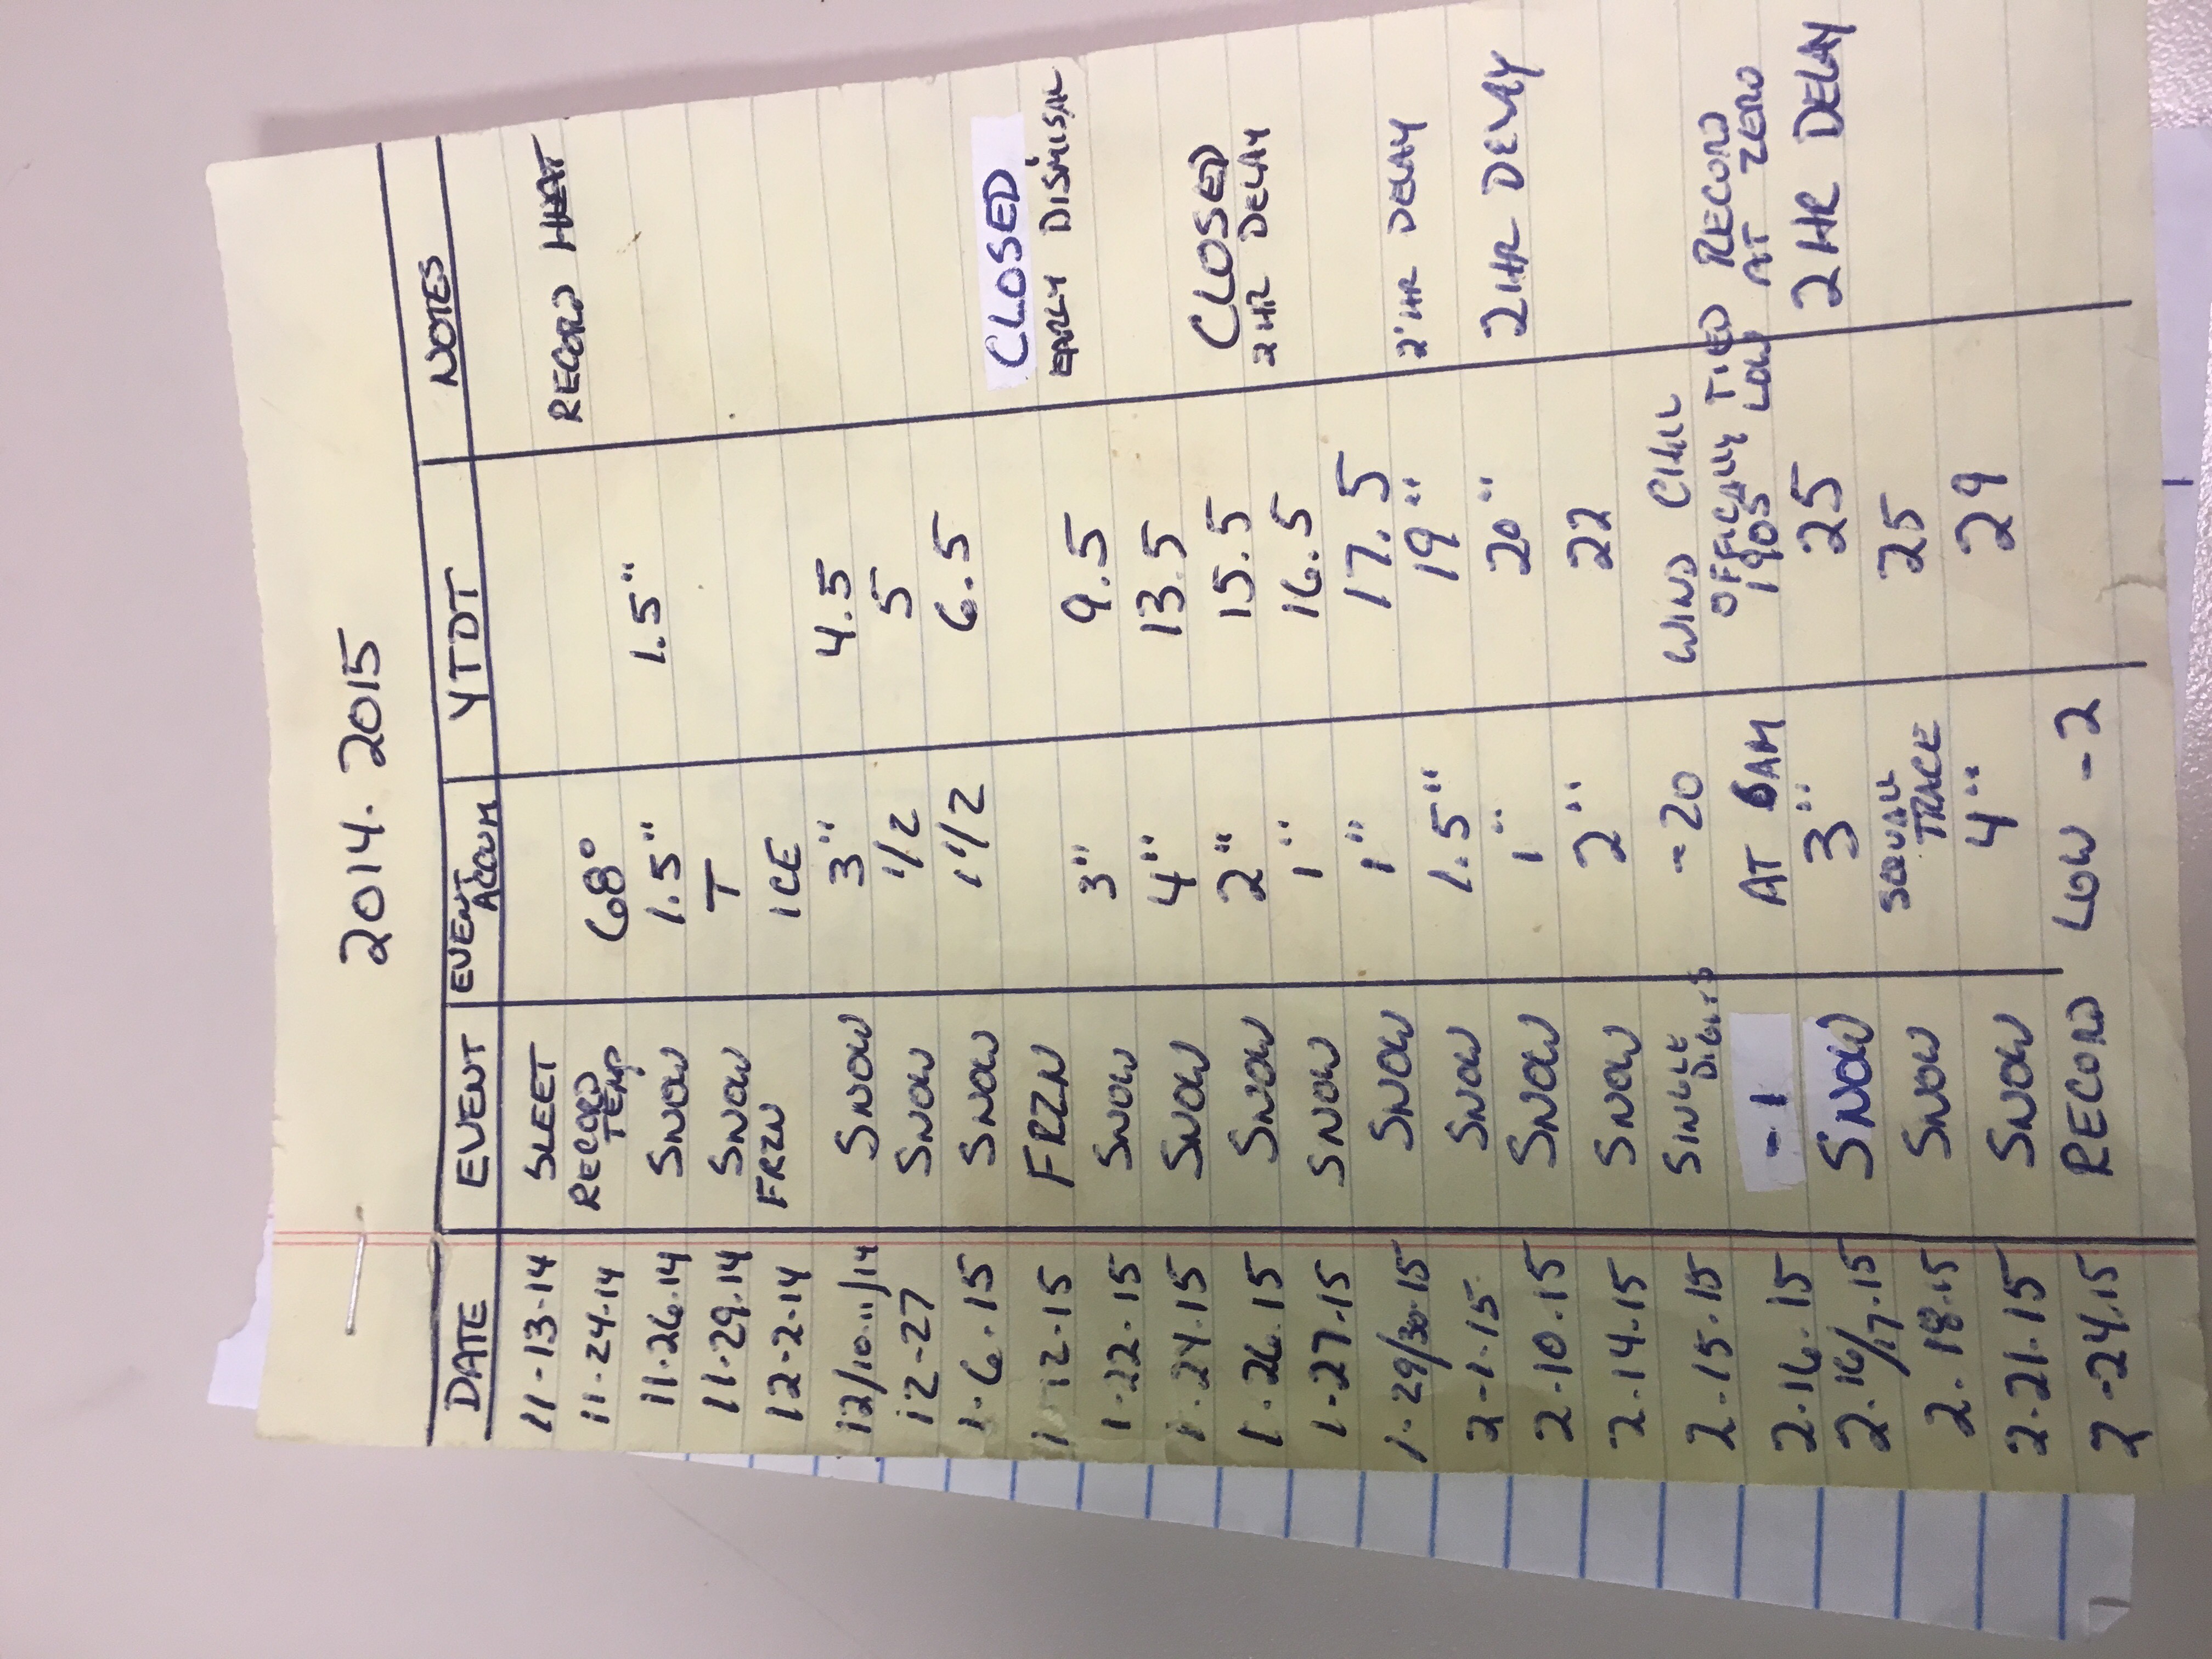 2014. 2015
DATE EVENT EVENT ACCUM YTDT NOTES
11-13-14 SLEET
11-24-14 RECORD TEMP 68° RECORD HEAT
11.26.14 SNOW 1.5" 1.5"
11-29.14 SNOW T
12-2-14 FRZN ICE
12/10.11/14 SNOW 3" 4.5
12-27 SNOW 1/2 5
1-6-15 SNOW 1 1/2 6.5 CLOSED
1-12-15 FRZN EARLY DISMISAL
1-22-15 SNOW 3" 9.5
1-24-15 SNOW 4" 13.5
1-26.15 SNOW 2" 15.5 CLOSED
1-27.15 SNOW 1" 16.5 2 HR DELAY
1-29/30.15 SNOW 1" 17.5
2-1-15 SNOW 1.5" 19" 2 HR DELAY
2-10-15 SNOW 1" 20" 2 HR DELAY
2-14-15 SNOW 2" 22
2-15-15 SINGLE DIGITS -20 WIND CHILL
2-16-15 -1 AT 6AM OFFICIALLY TIED RECORD
1905 LOW AT ZERO
2.16/17.15 SNOW 3" 25 2 HR DELAY
2.18.15 SNOW SQUALL TRACE 25
2-21-15 SNOW 4" 29
2-24.15 RECORD LOW -2